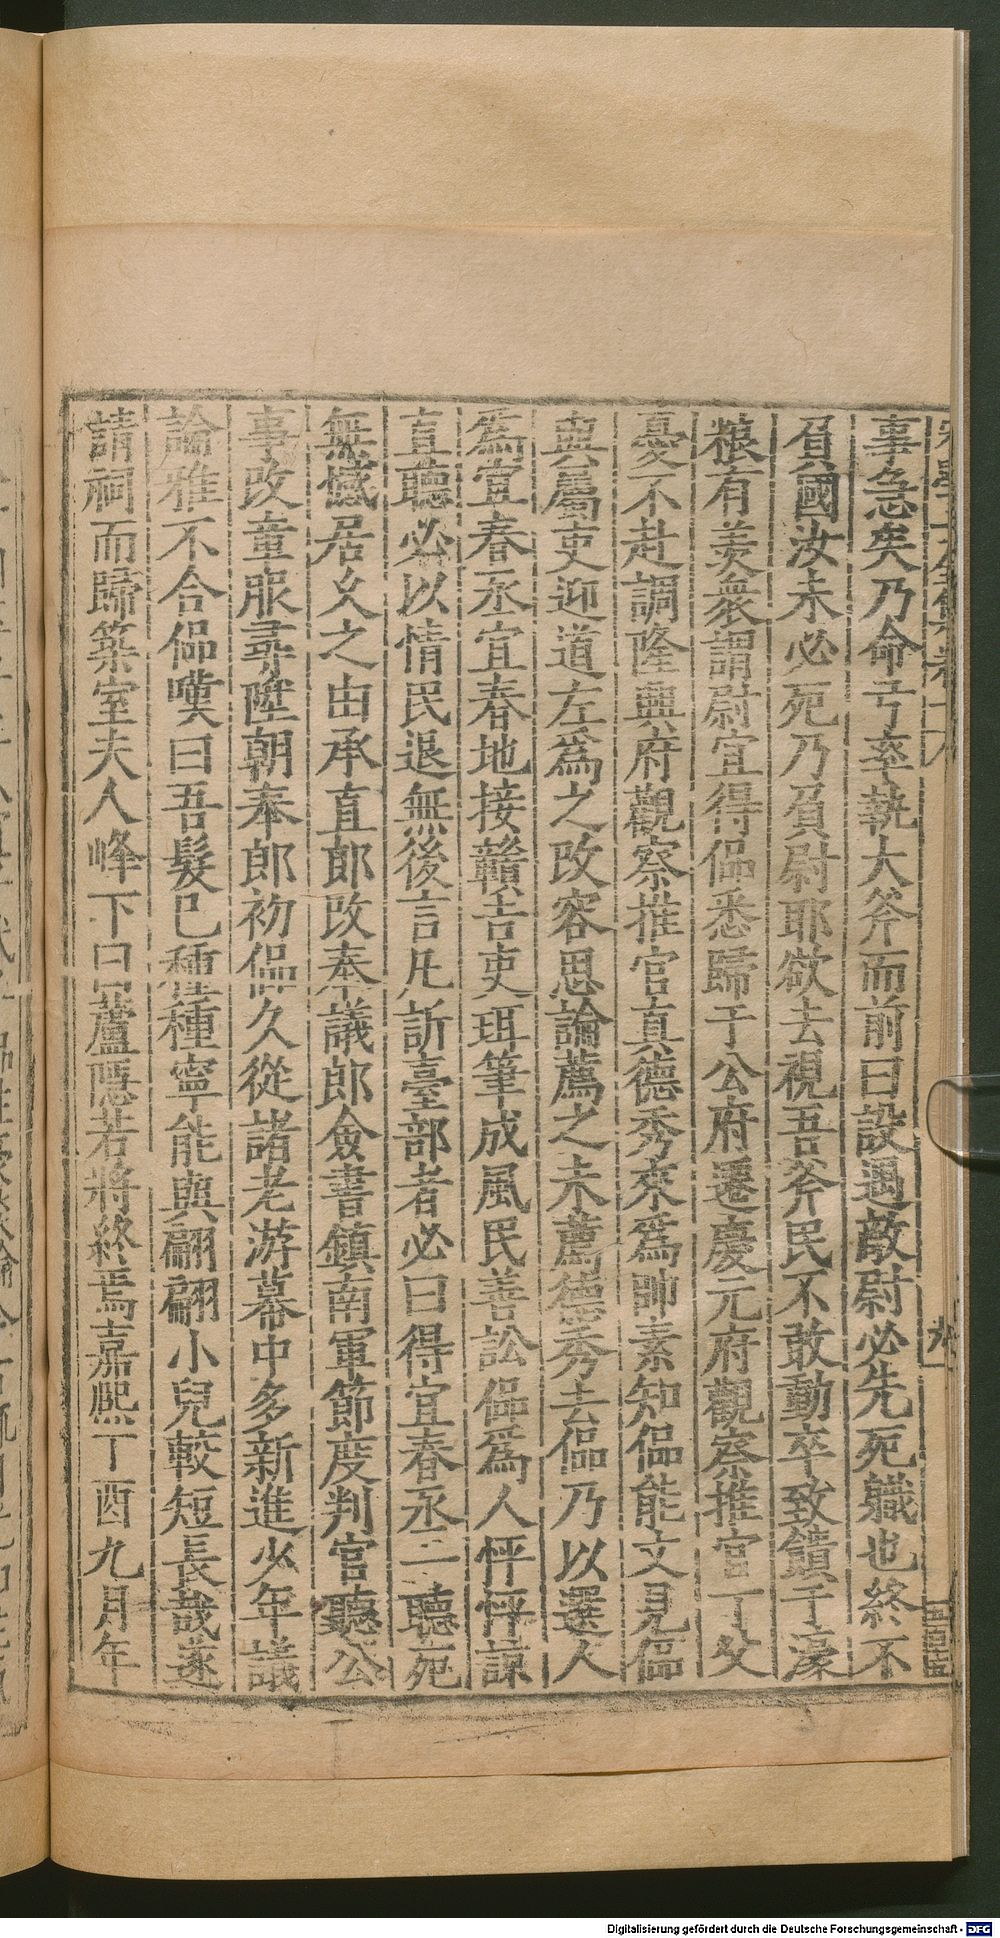 事急矣乃命弓卒執大斧而前曰設遇敵尉必先死職也終不
負國汝未必死乃負尉耶欲去視吾斧民不敢動卒致饋于濠
粮有羨衆謂尉宜得偘悉歸于公府遷慶元府觀察推官丁父
憂不赴調隆興府觀察推官真德秀來為帥素知偘能文見偘
與屬吏迎道左為之改容思論薦之未薦德秀去偘乃以選人
為宜春丞宜春地接贛吉吏珥筆成風民善訟偘為人怦怦諒
直聽必以情民退無後言凡訴臺部者必曰得宜春丞一聽死
無憾居久之由承直郎改奉議郎僉書鎮南軍節度判官聽公
事改童服尋陞朝奉郎初偘久從諸老游幕中多新進少年議
論雅不合偘嘆曰吾髮已種種寧能與翩翩小兒較短長哉遂
請祠而歸築室夫人峰下曰蘆隱若將終焉嘉熙丁酉九月年
九
Digitalisierung gefördert durch die Deutsche Forschungsgemeinschaft - DFG